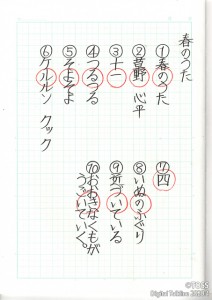 春のうた
①春のうた
②草野 心平
③十一
④つるつる
⑤そよそよ
⑥ケルルン クック
⑦四
⑧いぬのふぐり
⑨近づいている
⑩おおきなくもが
うごいていく。
©TOSS